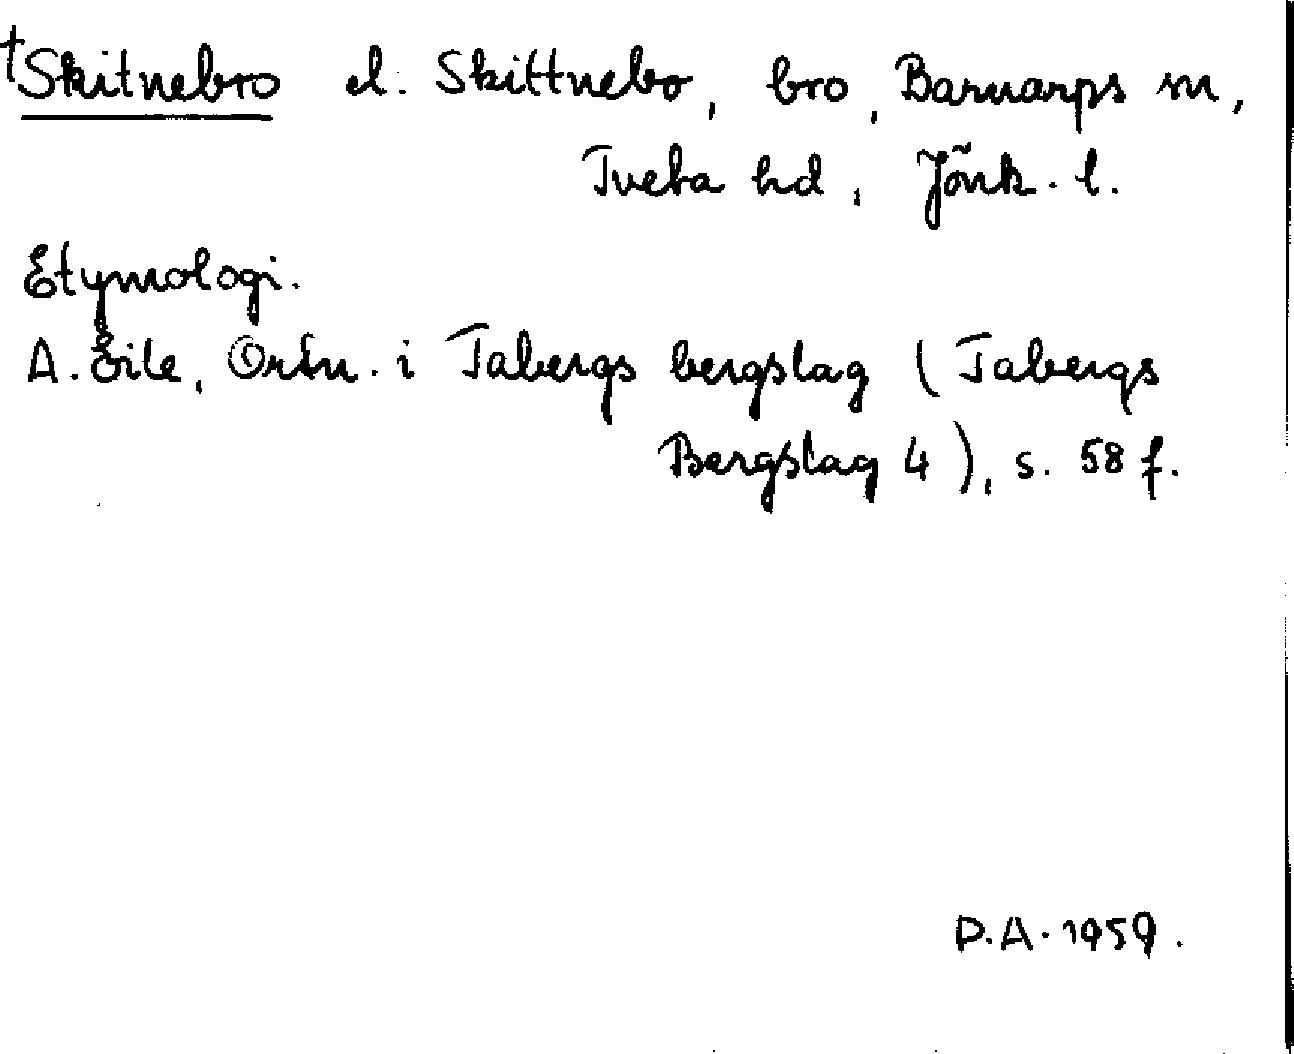 †Skitnebro el. Skittnebo, bro, Barnarps sn,
Tveta hd, Jönk. l.
Etymologi.
A. Eile, Ortn. i Tabergs bergslag (Tabergs
Bergslag 4), s. 58 f.
D.A. 1959.